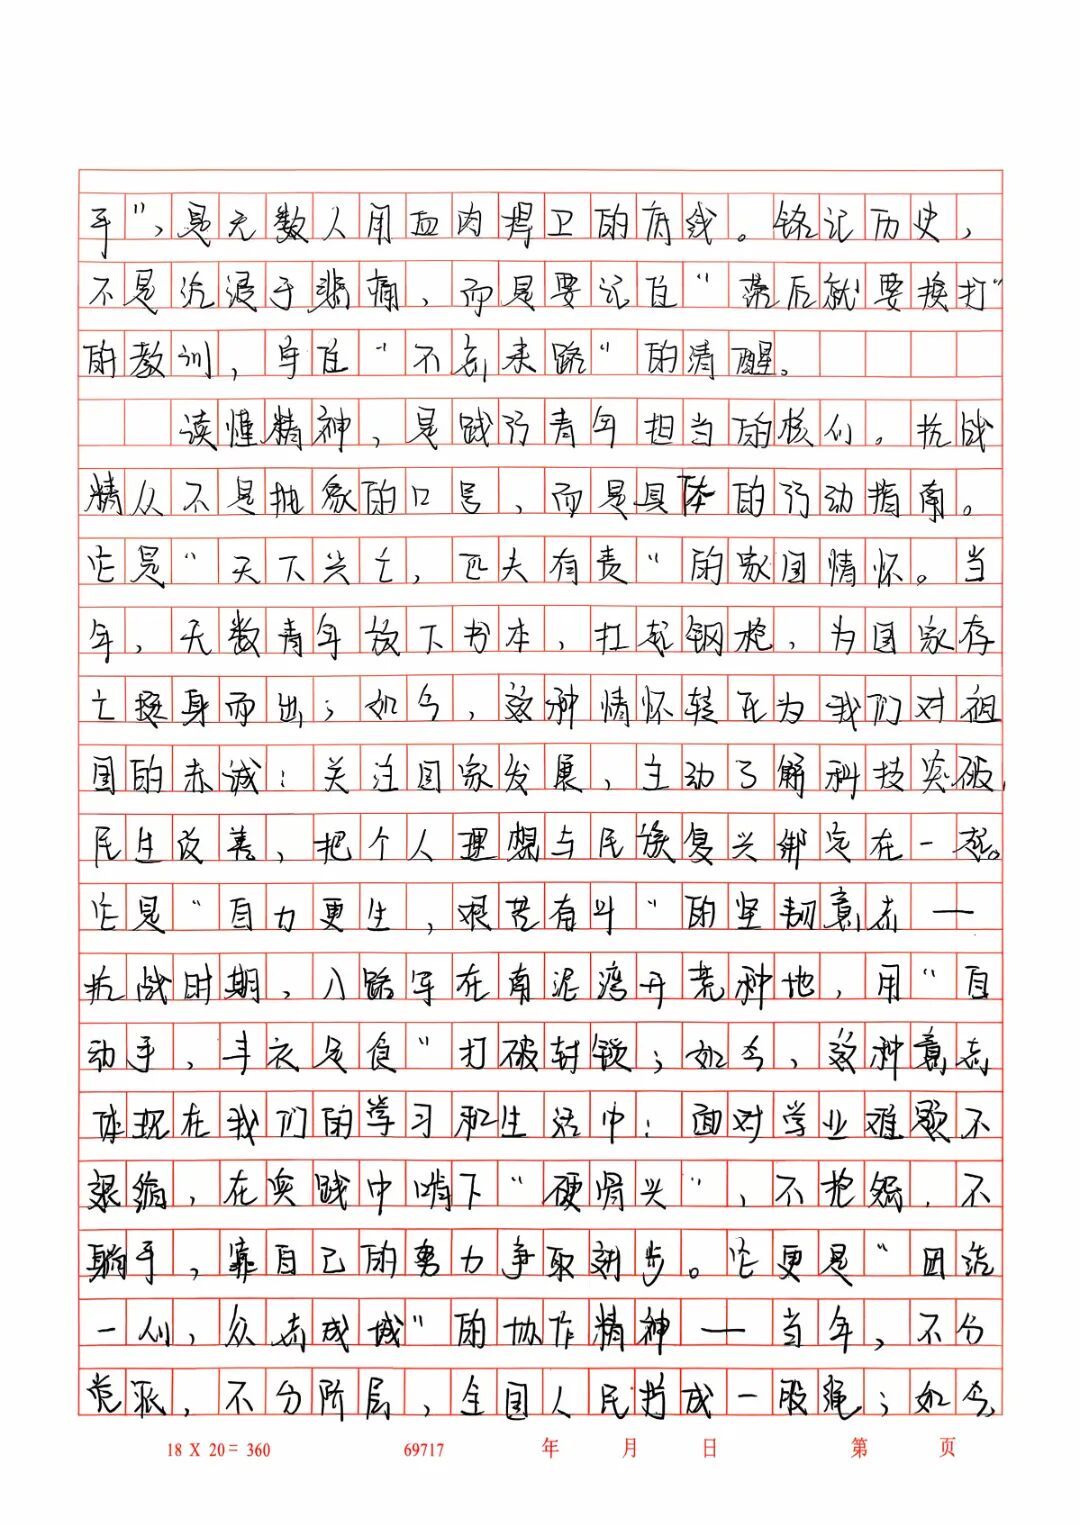 平”，是无数人用血肉捍卫的底线。铭记历史，
不是沉浸于悲痛，而是要记住“落后就要挨打”
的教训，守住“不忘来路”的清醒。
读懂精神，是践行青年担当的核心。抗战
精众不是抽象的口号，而是具体的行动指南。
它是“天下兴亡，匹夫有责“的家国情怀。当
年，无数青年放下书本，扛起钢枪，为国家存
亡挺身而出；如今，这种情怀转化为我们对祖
国的赤诚：关注国家发展，主动了解科技突破，
民生改善，把个人理想与民族复兴绑定在一起。
它是“自力更生，艰苦奋斗“的坚韧意志—
抗战时期，八路军在南泥湾开荒种地，用“自
动手，丰衣足食“打破封锁；如今，这种意志
体现在我们的学习和生活中：面对学业难题不
退缩，在实践中啃下“硬骨头”，不抱怨，不
躺平，靠自己的努力争取进步。它更是“团结
一心，众志成城”的协作精神—当年，不分
党派，不分阶层，全国人民拧成一股绳；如今，
18 X 20 = 360 69717 年 月 日 第 页